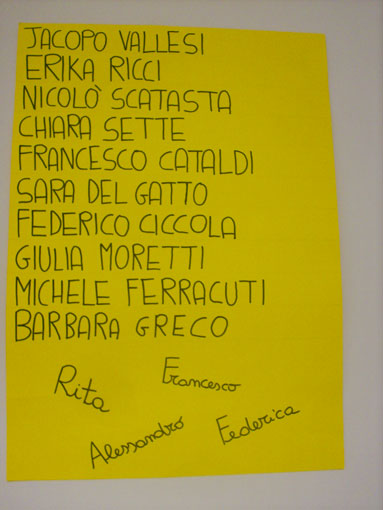 JACOPO VALLESI
ERIKA RICCI
NICOLÒ SCATASTA
CHIARA SETTE
FRANCESCO CATALDI
SARA DEL GATTO
FEDERICO CICCOLA
GIULIA MORETTI
MICHELE FERRACUTI
BARBARA GRECO
Rita
Francesco
Alessandro
Federica